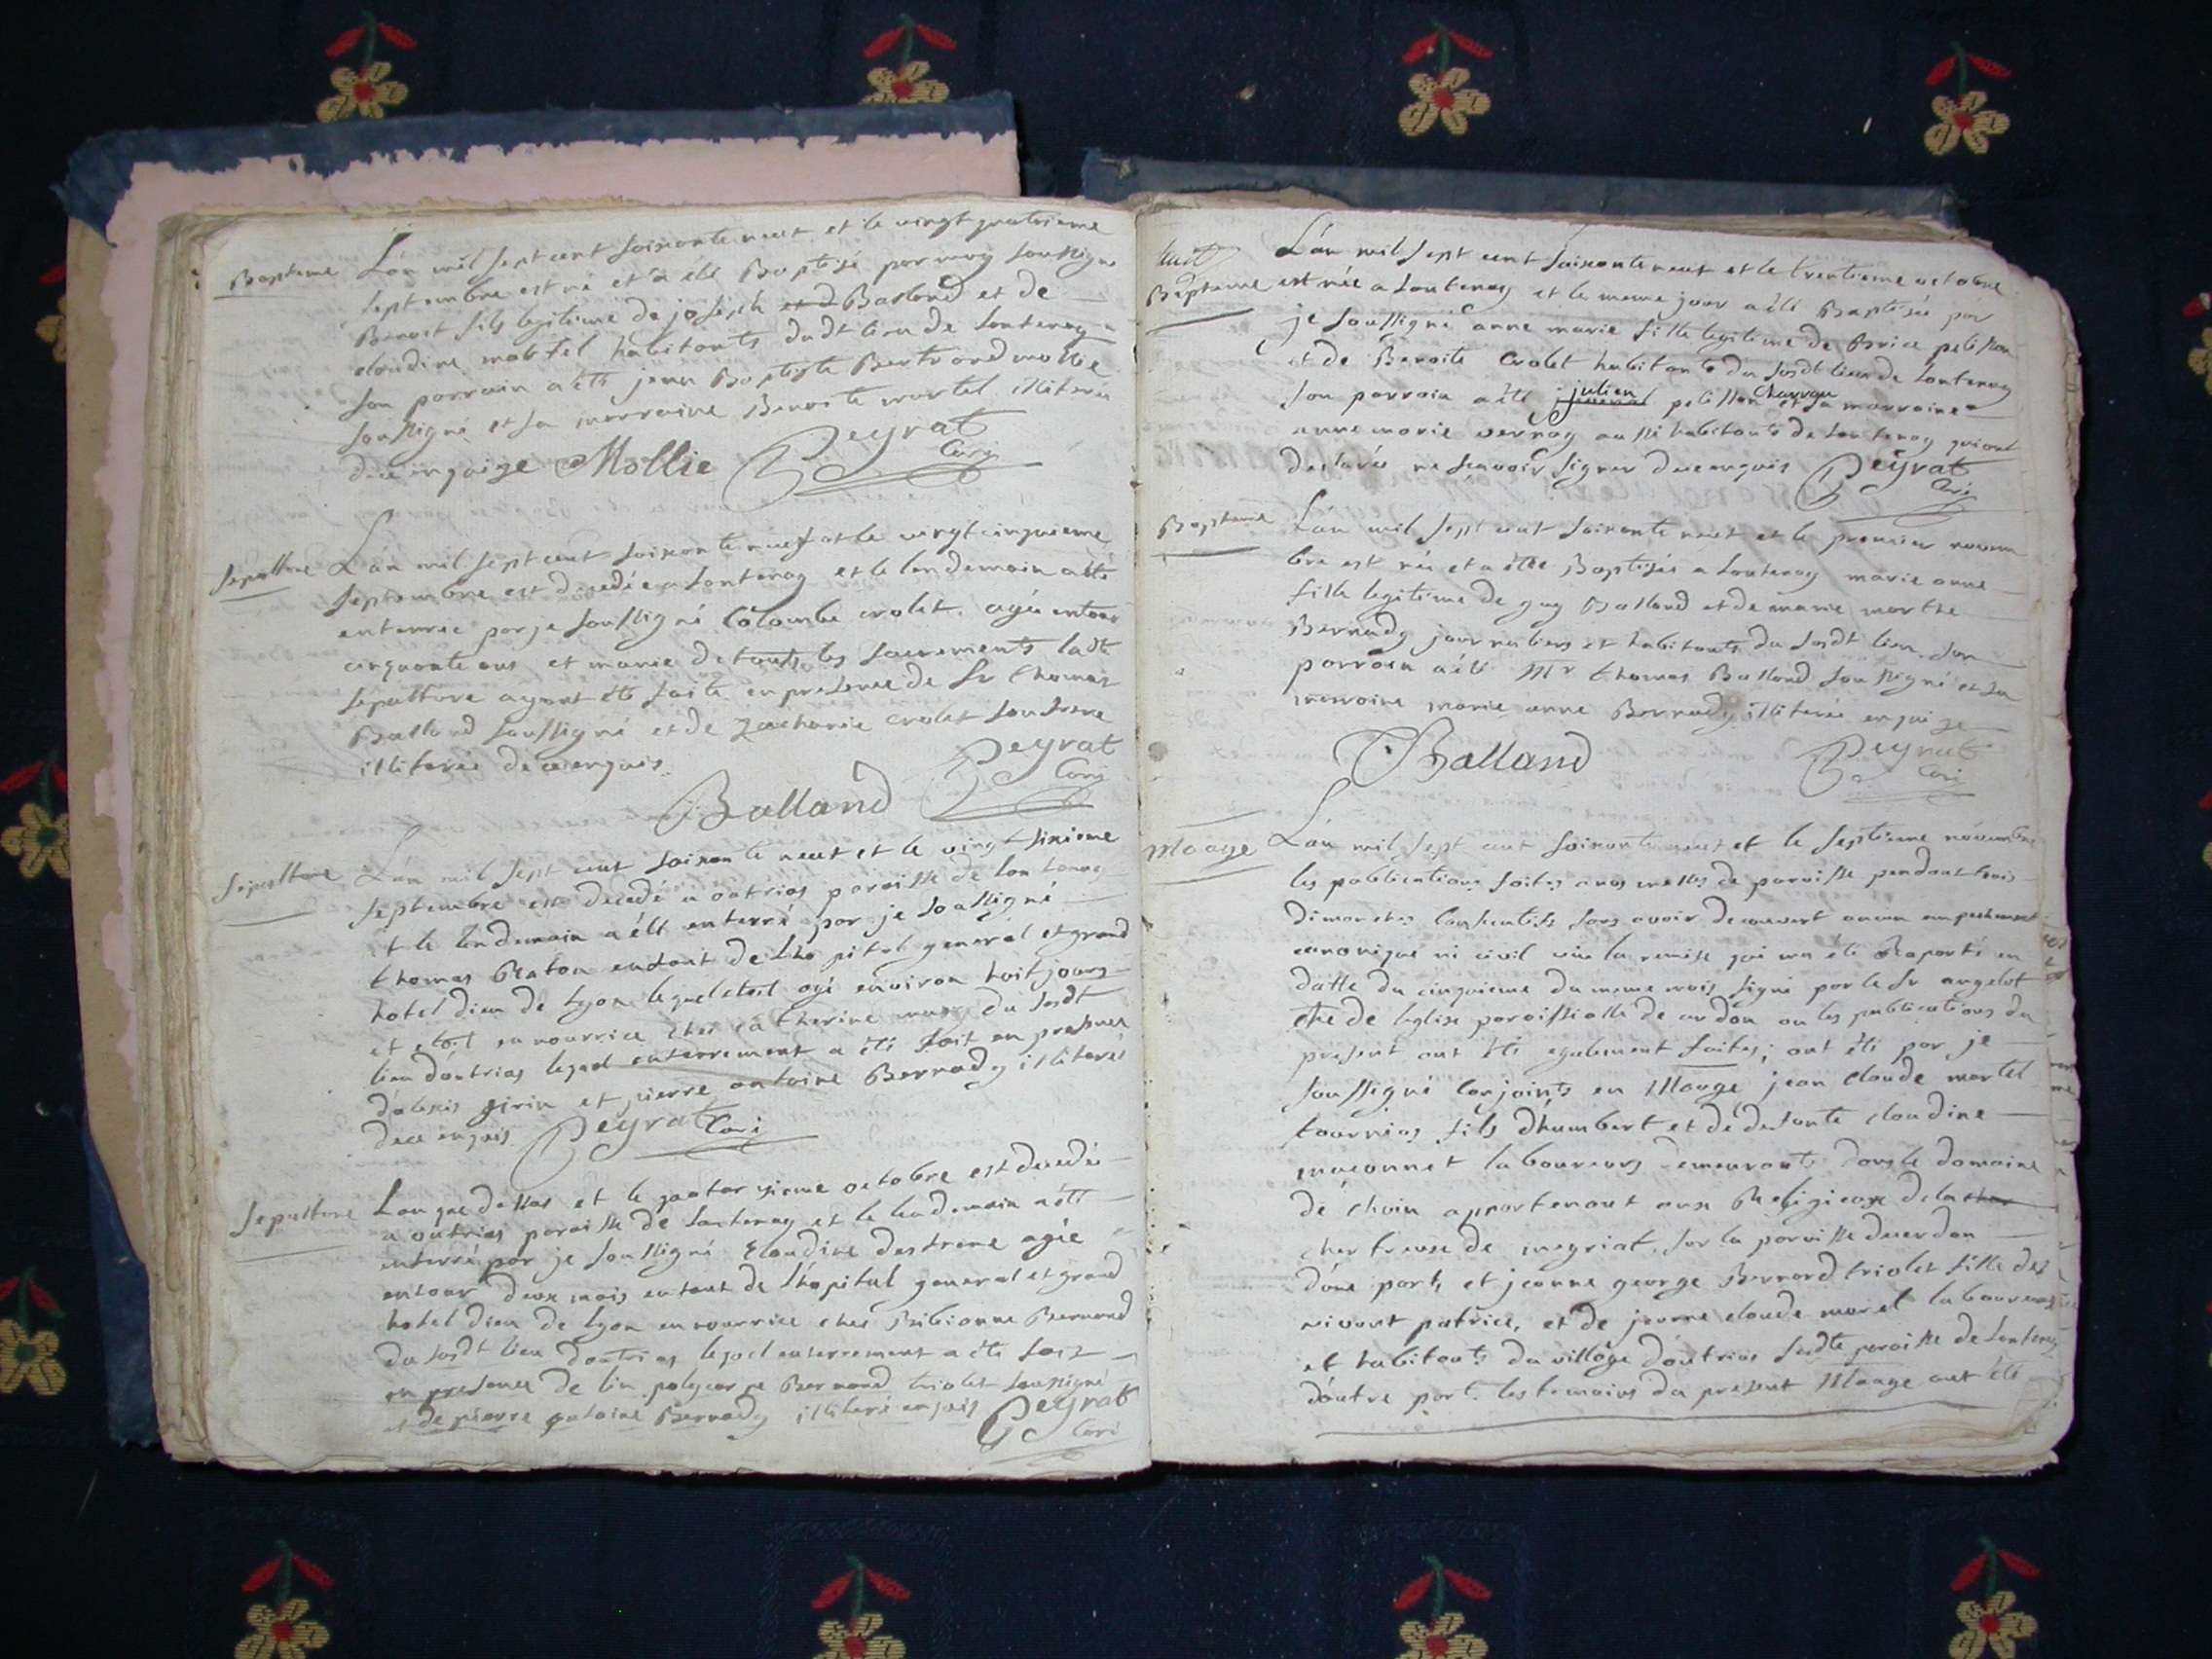 Bapteme L'an mil sept cent soixante neuf et le vingt quatrieme
septembre est né et a été Baptisé par moy soussigné
Benoist fils legitime de joseph et d Balland et de
claudine martel habitants dudt lieu de Lontenay
son parrain a été jean Baptiste Bertrand mollie
soussigné et sa marraine Benoite martel illiterée
de ce enquise Mollie Peyrat
Curé
Sepulture L'an mil sept cent soixante neuf et le vingt cinquieme
septembre est decedée a Lontenay et le lendemain a été
enterrée par je soussigné Colombe crolet agée entour
cinquante ans et munie de touts les sacrements ladte
sepulture ayant été faite en presence de Sr thomas
Balland soussigné et de zacharie crolet son frere
illiterée de ce enquis
Peyrat
Curé
Balland
Sepulture L'an mil sept cent soixante neuf et le vingt sixieme
septembre est decedé a outrias paroisse de Lontenay
et le lendemain a été enterré par je soussigné
thomas Platon enfant de Lhopital general et grand
hotel dieu de Lyon lequel etoit agé environ huit jours
et etoit en nourrice chez catherine du susdt
lieu d'outrias lequel enterrement a été fait en presence
d'alexis girin et pierre antoine Bernady illiterés
de ce enquis Peyrat Curé
Sepulture L'an que dessus et le quatorzieme octobre est decedée
a outrias paroisse de Lontenay et le lendemain a été
enterré par je soussigné Claudine destrene agée
entour deux mois enfant de l'hopital general et grand
hotel dieu de Lyon en nourrice chez Bibianne Bernard
du susdt lieu doutrias lequel enterrement a été fait
en presence de polycarpe Bernard triolet soussigné
et de pierre antoine Bernady illiteré enquis Peyrat
Curé
huit L'an mil sept cent soixante neuf et le trentieme octobre
Bapteme est née a Lontenay et le meme jour a été Baptisée par
je soussigné anne marie fille legitime de Brice pelisson
et de Benoite Crolet habitants du susdt lieu de Lontenay
julien Charvau
son parrain a été pelisson et sa marraine
anne marie vernay aussi habitants de Lontenay qui ont
declarés ne scavoir signer de ce enquis Peyrat
Curé
Bapteme L'an mil sept cent soixante neuf et le premier novem
bre est née et a étée Baptisée a Lontenay marie anne
fille legitime de guy Balland et de marie marthe
Bernady journaliers et habitants du susdt lieu. son
parrain a été Mr thomas Balland soussigné et sa
marraine marie anne Bernady illiterée enquise
Balland Peyrat
Curé
Mariage L'an mil sept cent soixante neuf et le septieme novembre
les publications faites a nos messes de paroisse pendant trois
dimanches consecutifs sans avoir decouvert aucun empechement
canonique ni civil vue la remise qui m'a été Raporté en
datte du cinquieme du meme mois signé par le Sr angelot
de l'eglise paroissialle de cerdon ou les publications du
present ont été egalement faites; ont été par je
soussigné Conjoints en Mariage jean claude martel
tournias fils d'humbert et de defunte claudine
maconnet laboureurs demeurants dans le domaine
de choin appartenant aux Religieux de la char
chertreuse de meyriat sur la paroisse de cerdon
d'une part, et jeanne george Bernard triolet fille de
vivant patrice, et de jeanne claude morel laboureurs
et habitants du village d'outrias susdte paroisse de Lontenay
d'autre part. les temoins du present Mariage ont été